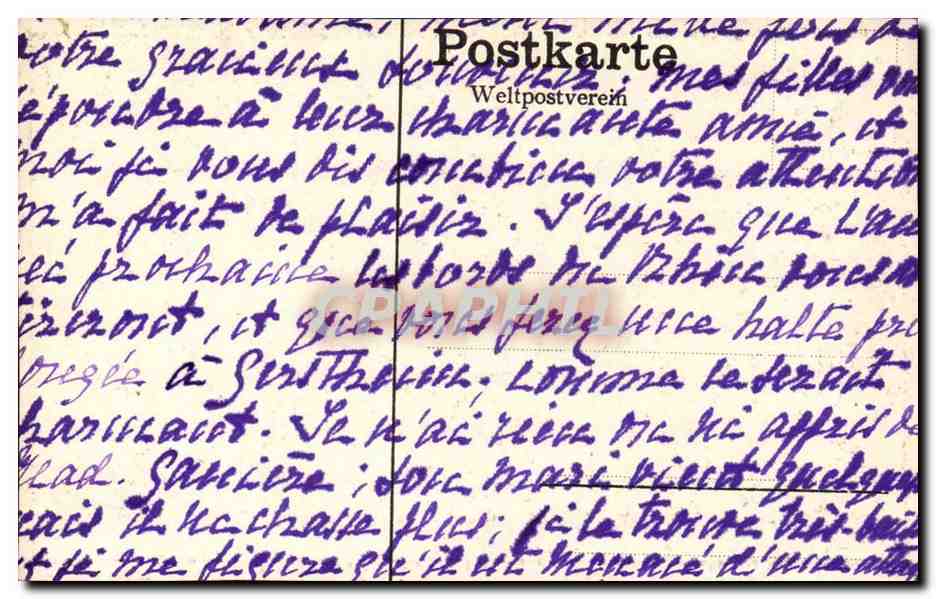 Postkarte
Weltpostverein
votre gracieux souvenir, mes filles vo
répondre à leur charmante amie, et
moi je vous dis combien votre attention
m'a fait de plaisir. J'espère que l'an
née prochaine les bords du Rhin vous a
ttireront, et que vous ferez une halte pro
longée à Gerstheim, comme ce serait
charmant. Je n'ai rien vu ni appris de
Mad. ; son mari vient quelque
mais il ne chasse plus; je le trouve très
et je me figure qu'il est menacé d'une atta
CPAPHIL